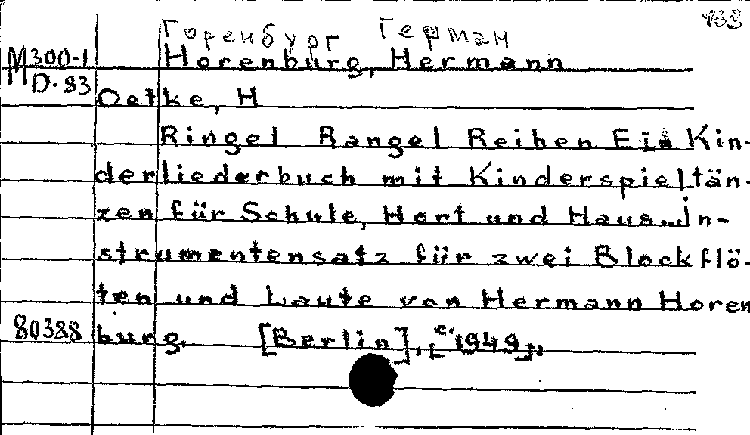 433
Горенбург Герман
M300-1 Horenburg, Hermann
D-83
Oetke, H
Ringel Rangel Reihen Ein Kin-
derliederbuch mit Kinderspieltän-
zen für Schule, Hort und Haus. In-
strumentensatz für zwei Blockflö-
ten und Laute von Hermann Horen
80388 burg. [Berlin], [c. 1949].